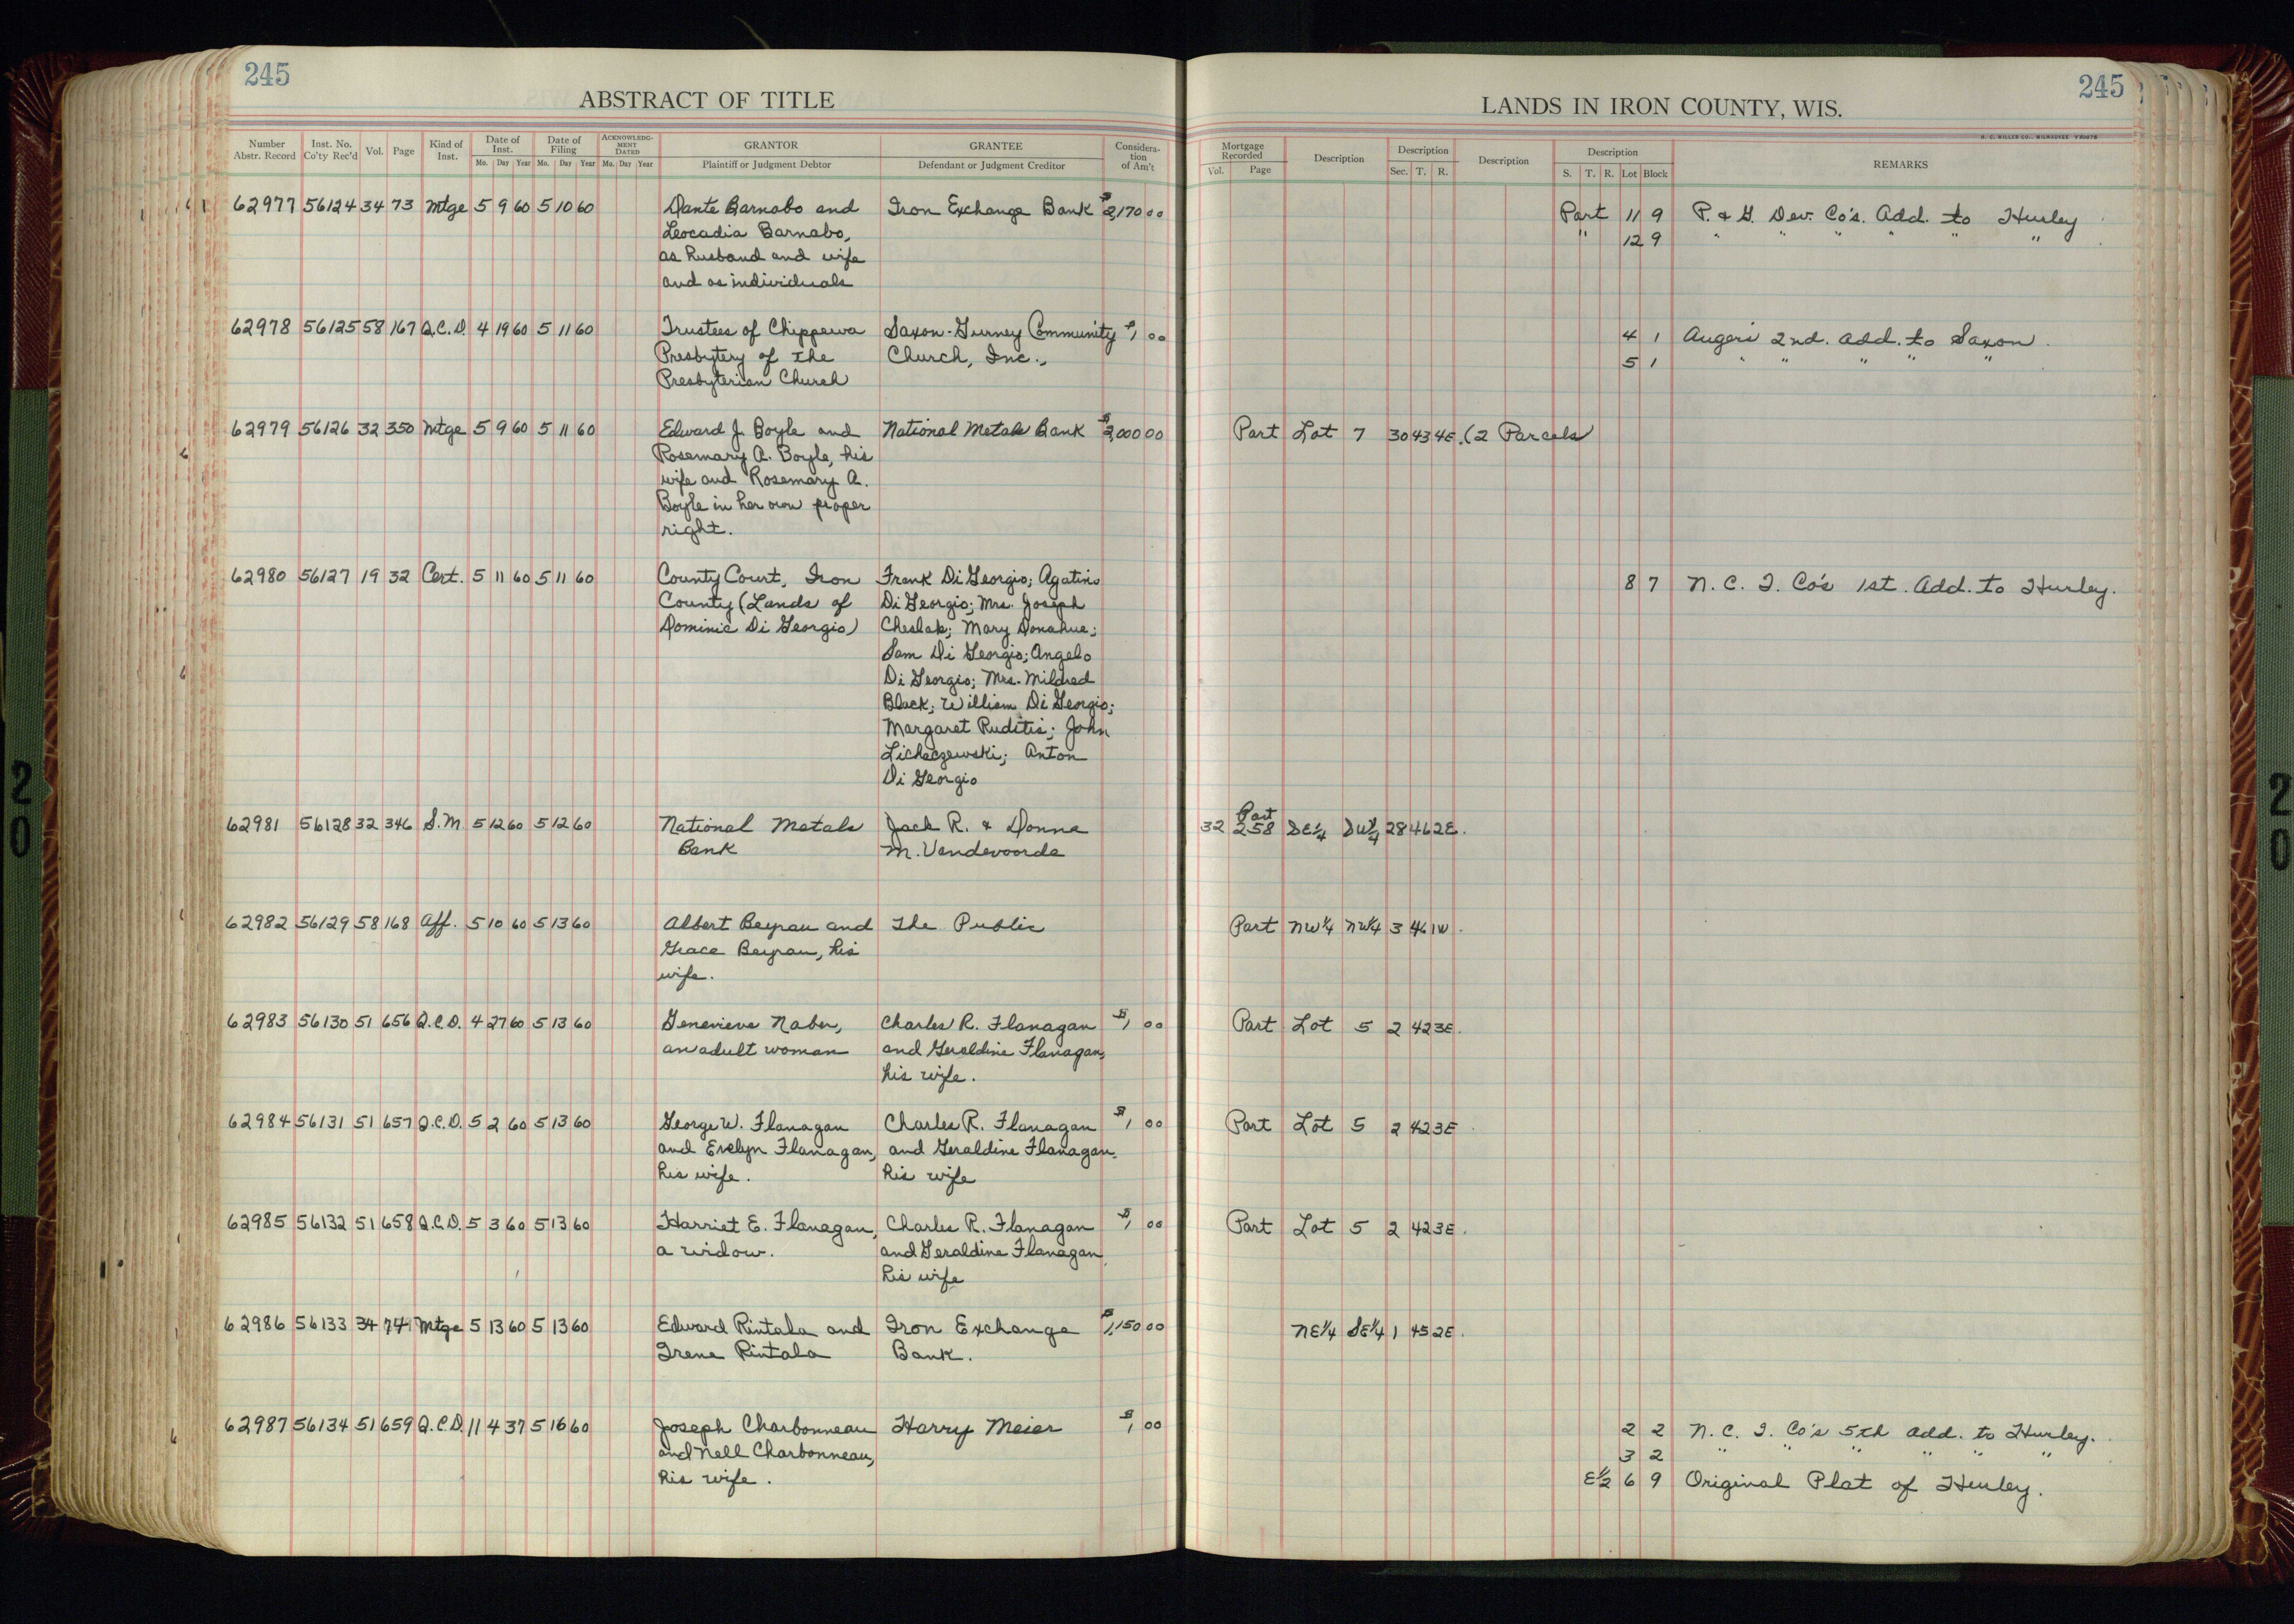 245
ABSTRACT OF TITLE
Number Abstr. Record Inst. No. Co'ty Rec'd Vol. Page Kind of Inst. Date of Inst. Mo. Day Year Date of Filing Mo. Day Year ACKNOWLEDGMENT DATED Mo. Day Year GRANTOR Plaintiff or Judgment Debtor GRANTEE Defendant or Judgment Creditor Consideration of Am't
62977 56124 34 73 Mtge 5 9 60 5 10 60 Dante Barnabo and Iron Exchange Bank $2,170 00
Leocadia Barnabo,
as husband and wife
and as individuals
62978 56125 58 167 Q.C.D. 4 19 60 5 11 60 Trustees of Chippewa Saxon-Gurney Community $1 00
Presbytery of the Church, Inc.,
Presbyterian Church
62979 56126 32 350 Mtge 5 9 60 5 11 60 Edward J. Boyle and National Metals Bank $2,000 00
Rosemary A. Boyle, his
wife and Rosemary A.
Boyle in her own proper
right.
62980 56127 19 32 Cert. 5 11 60 5 11 60 County Court, Iron Frank Di Georgio; Agatino
County (Lands of Di Georgio; Mrs. Joseph
Dominic Di Georgio) Cheslak; Mary Donahue;
Sam Di Georgio; Angelo
Di Georgio; Mrs. Mildred
Black; William Di Georgio;
Margaret Ruditis; John
Lichaczewski; Anton
Di Georgio
62981 56128 32 346 S.M. 5 12 60 5 12 60 National Metals Jack R. & Donna
Bank M. Vandevoorde
62982 56129 58 168 Aff. 5 10 60 5 13 60 Albert Beyrau and The Public
Grace Beyrau, his
wife.
62983 56130 51 656 Q.C.D. 4 27 60 5 13 60 Genevieve Naber, Charles R. Flanagan $1 00
an adult woman and Geraldine Flanagan,
his wife.
62984 56131 51 657 Q.C.D. 5 2 60 5 13 60 George W. Flanagan Charles R. Flanagan $1 00
and Evelyn Flanagan, and Geraldine Flanagan,
his wife. his wife
62985 56132 51 658 Q.C.D. 5 3 60 5 13 60 Harriet E. Flanagan, Charles R. Flanagan $1 00
a widow. and Geraldine Flanagan,
his wife
62986 56133 34 74 Mtge 5 13 60 5 13 60 Edward Rintala and Iron Exchange $1,150 00
Irene Rintala Bank.
62987 56134 51 659 Q.C.D. 11 4 37 5 16 60 Joseph Charbonneau Harry Meier $1 00
and Nell Charbonneau,
his wife.
245
LANDS IN IRON COUNTY, WIS.
H. C. MILLER CO., MILWAUKEE
Mortgage Recorded Vol. Page Description Description Sec. T. R. Description Description S. T. R. Lot Block REMARKS
Part 11 9 P. & G. Dev. Co's. Add. to Hurley
" 12 9 " " " " " "
4 1 Auger's 2nd. Add. to Saxon.
5 1 " " " " "
Part Lot 7 30 43 4E. (2 Parcels
8 7 N. C. I. Co's 1st. Add. to Hurley.
Part
32 258 SE¼ SW¼ 28 46 2E.
Part NW¼ NW¼ 3 46 1W.
Part Lot 5 2 42 3E.
Part Lot 5 2 42 3E.
Part Lot 5 2 42 3E.
NE¼ SE¼ 1 45 2E.
2 2 N. C. I. Co's 5th Add. to Hurley.
3 2 " " " " " " "
E½ 6 9 Original Plat of Hurley.
20
20